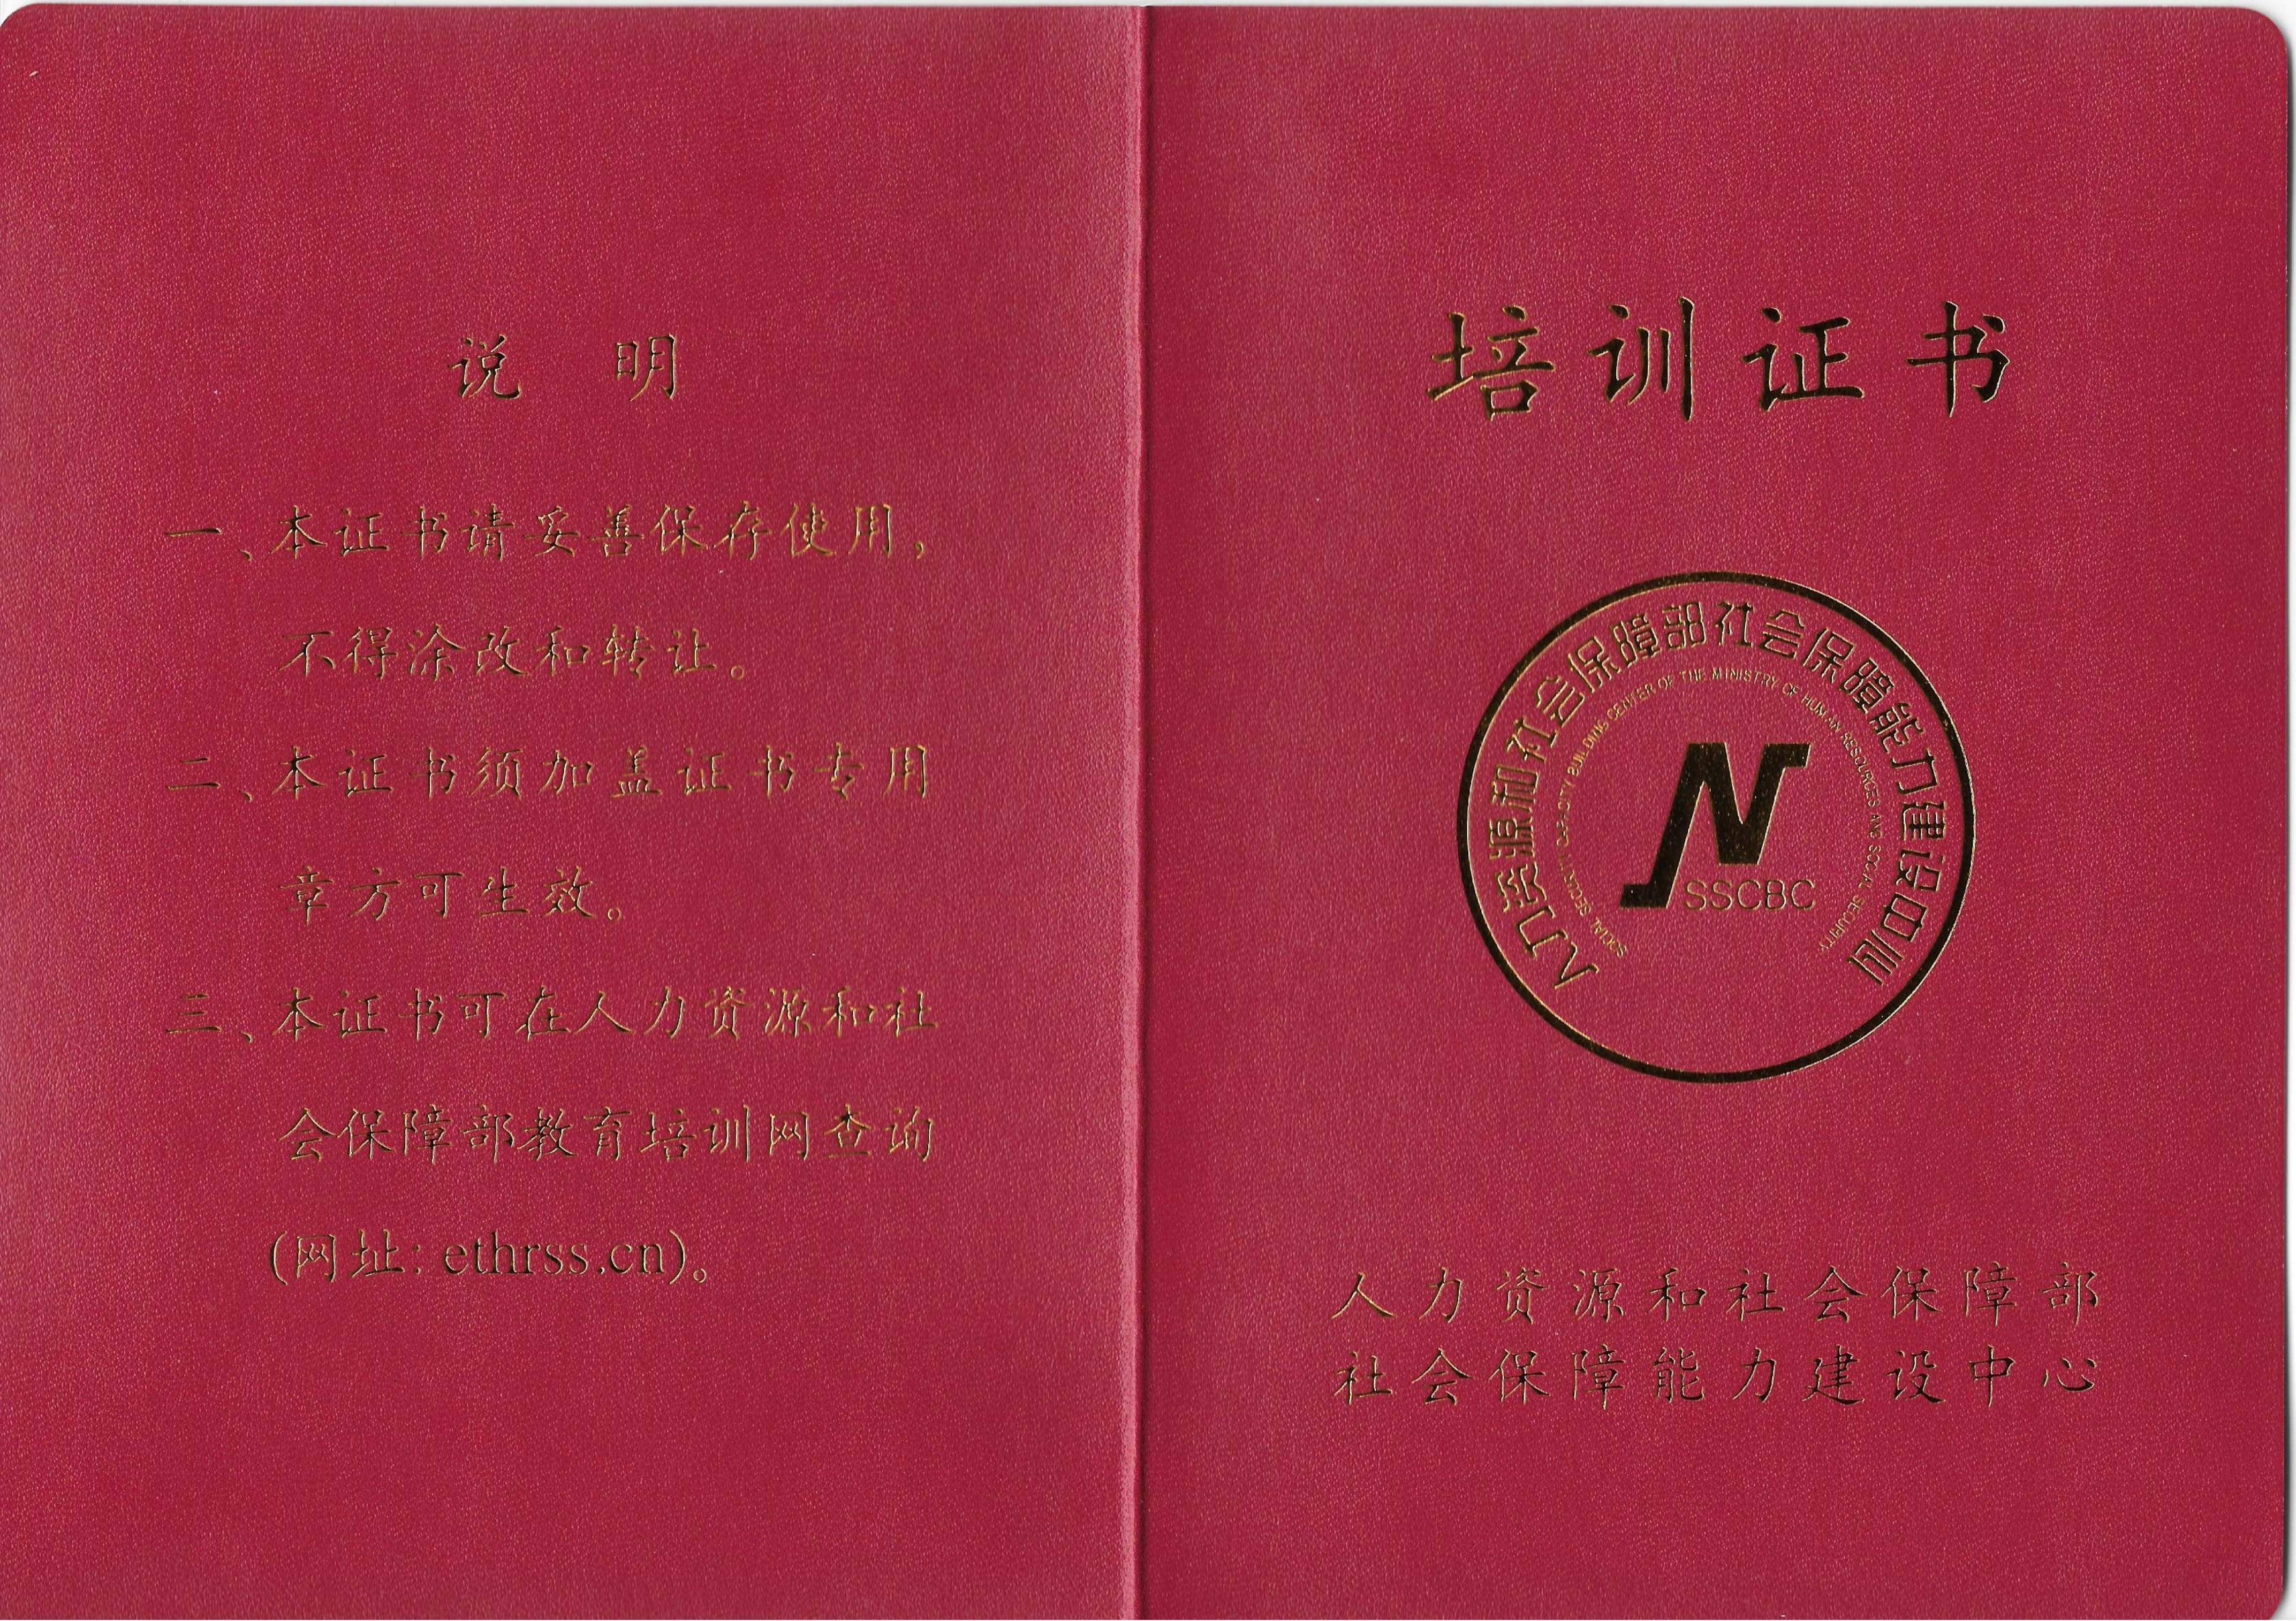 说 明
一、本证书请妥善保存使用，
不得涂改和转让。
二、本证书须加盖证书专用
章方可生效。
三、本证书可在人力资源和社
会保障部教育培训网查询
(网址: ethrss.cn)。
培训证书
人力资源和社会保障部社会保障能力建设中心
SOCIAL SECURITY CAPACITY BUILDING CENTER OF THE MINISTRY OF HUMAN RESOURCES AND SOCIAL SECURITY
SSCBC
人力资源和社会保障部
社会保障能力建设中心